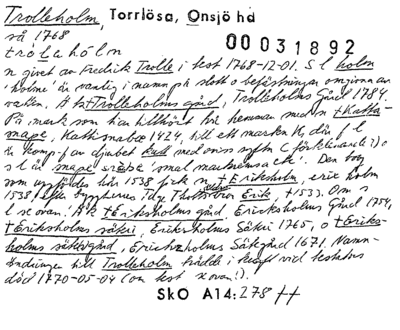 Trolleholm, Torrlösa, Onsjö hd
så 1768 00031892
trölahólm
n givet av Fredrik Trolle i test 1768-12-01. S l holm
'holme' är vanlig i namn på slott o befästningar omgivna av
vatten. Äk tTrolleholms gård, Trolleholms Gård 1784.
På mark som har tillhört hr herman med n tKatta-
snape, Kattisnabæ 1424, till ett marken N, där f l
är komp-f av djurbet katt med oviss syftn (förklenande?) o
s l är snape 'smal markremsa ck'. Den borg
som uppfördes här 1538 fick n tEriksholm, eric holm
1538, efter byggherren Tage Thotts bror Erik, †1533. Om s
l se ovan. Äk tEriksholms gård, Ericksholms Gård 1754,
tEriksholms säteri, Eriksholms Säkri 1765, o tEriks-
holms sätesgård, Erichzholms Sätgård 1671. Namn-
ändringen till Trolleholm trädde i kraft vid testators
död 1770-05-04 (om test se ovan!).
SkO A14:278 ff